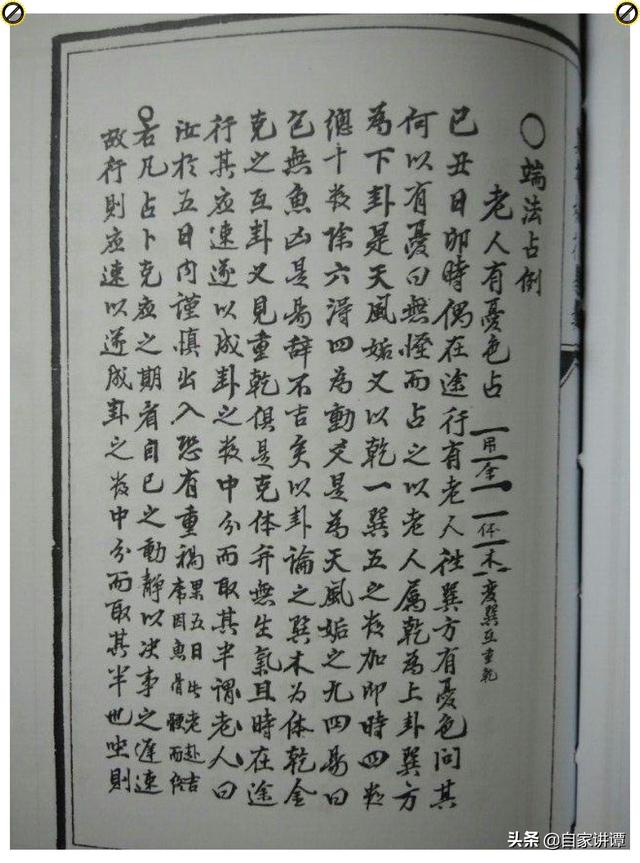 〇端法占例
老人有憂色占
用金
体木
變巽互重乾
已丑日卯時偶在途行有老人往巽方有憂色問其
何以有憂曰無怪而占之以老人屬乾為上卦巽方
為下卦是天風姤又以乾一巽五之数加卯時四数
總十数除六得四為動爻是為天風姤之九四易曰
包無魚凶是易辞不吉矣以卦論之巽木為体乾金
克之互卦又見重乾俱是克体并無生氣且時在途
行其应速遂以成卦之数中分而取其半謂老人曰
汝於五日内謹慎出入恐有重禍果五日此老赴吉
席因魚骨鯁而终
〇右凡占卜克应之期看自己之動静以决事之遲速
故行則应速以遂成卦之数中分而取其半也坐則
头条 @自家讲谭